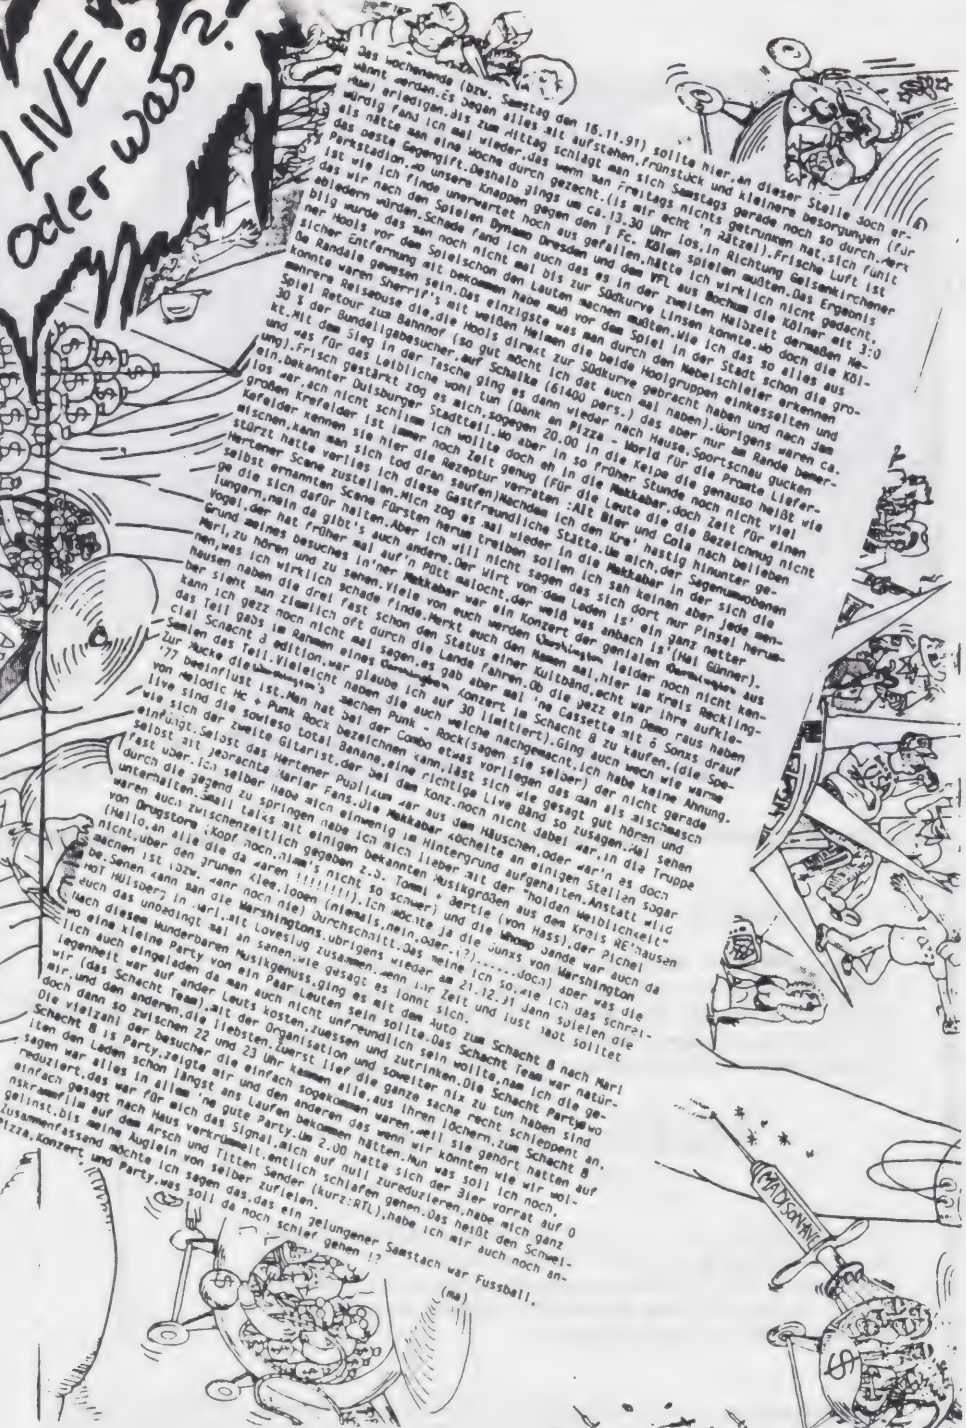 LIVE!
oder was?
Das Wochenende (bzw. Samstag den 16.11.91) sollte hier,an dieser Stelle doch er-
wännt werden.Es began alles mit aufstehen,frünstück und kleinere besorgungen (für
Mum) erledigen.Bis zum Mittag schlägt man sich Samstags gerade noch so durch.Merk
würdig fand ich mal wieder,das wenn man Freitags nichts getrunken hat,sich fühlt
als hätte man eine Woche durch gezecht.(is mir echt 'n Rätzel).Frische Luft ist
das beste Gegengift.Deshalb gings um ca.13.30 Uhr los,in Richtung Gelsenkirchener
Parkstadion,wo unsere Knappen gegen den 1 Fc. Kölen spielen mußten.Das Ergebnis
ist wie ich finde unerwartet hoch aus gefallen,hätte ich wirklich nicht gedacht,
das wir nach den Spielen Dynamo Dresden und dem VFL aus Bochum die Kölner mit 3:0
abledern würden.Schade fand ich auch das es in der zweiten Halbzeit dermaßen Ne-
blig wurde das man noch nicht mal bis zur Südkurve Linsen konnte.Wo doch die Köl-
ner Hools vor dem Spielschon den Lauten machen mußten.Wie ich das so alles aus
sicher Entfernung mit bekommen habe muß vor dem Spiel in der Stadt schon die gro-
Be Randale gewesen sein.Das einzigste was man durch den Nebelschleier erkennen
konnte waren Sherrif's mit weißen Helmen die beide Hoolgruppen einkesselten und
mehrere Reisebuse die,die Hools direkt zur Südkurve gebracht haben und nach dem
Spiel Retour zum Bahnhof (so gut möcht ich dat auch mal haben).Übrigens waren ca.
30 % der Bundeligabesucher,auf Schalke (61400 Pers.) das aber nur am Rande bemer-
kt.Mit dem Sieg in der Tasche ging es dann wieder nach Hause,Sportschau gucken
und was für das Leibliche wohl tun (Dank an Pizza - World für die Promte Liefer-
ung).Frisch gestärkt zog es mich,sogegen 20.00 in die Keipe die genauso heißt wie
ein,bekannter Duisburger Stadtteil.Wo aber in so früher Stunde noch nicht viel
los war,ach nicht schlimm ich wollte doch eh in die Makkabar,doch Zeit für einen
großen Krefelder ist immer noch Zeit genug (Für die Leute die die Bezeichnug nicht
Kefelder kennen sie hier die Rezeptur verraten :Alt Bier und Cola nach belieben
mischen,kann man sich tod dran saufen)Nachdem ich den Kre' hastig hinunter ge-
stürzt hatte verlies ich diese Gastfreundliche Stätte.Um mich,der Sagenumwobenen
Hertener Scene zustellen.Mich zog es mal wieder in die Makkabar in der sich die
selbst ernannten Scene Fürsten herum treiben sollen ich sah keinen aber jede men-
ge die sich dafür halten.Aber ich will nicht sagen das sich dort nur Pinsel herum-
lungern,nein da gibt's auch andere.Der Wirt von dem Laden is' ein ganz netter
Vogel,der hat früher mal auf'n Pütt malocht,der weiß was anbach is'(Hai Günner).
Grund meines besuches in'ner Makkabar war ein Konzert der genialen Warshington aus
Marl,zu hören und zu sehen.Viele von euch werden Warshington leider noch nicht ken-
nen,was ich wirklich schade finde.Merkt euch den Namen mal,hier im Kreis Reckling-
hausen haben die drei fast schon den Status einer Kultband,echt war ihre aufkle-
ber sieht man ziemlich oft durch die Lande fahren.Ob die gezz ein Demo raus haben
kann ich gezz noch nicht mal sagen,es gab aber mal 'ne Cassette mit 6 Sonxs drauf
das Teil gabs im Rahmen eines Warshington Konzert im Schacht 8 zu kaufen.(die Spe-
cial Schacht 8 edition,war glaube ich auf 30 limitiert).Ging auch wech wie warme
Semlen das Teil.Vieleicht haben die auch welche nachgemacht,ich habe keine Ahnung.
Zur Mucke die Warshington's machen Punk - Rock(sagen sie selber) der nicht gerade
'77 beeinflust ist.Man hat bei der Combo etwas vorliegen das man als mischmasch
von Melodic Hc + Punk Rock bezeichnen kann,läst sich wie gesagt gut hören und
live sind die sowieso total Banane,eine richtige Live Band so zusagen.Mal sehen
wie sich der zweite Gitarist,der bei dem Konz.noch nicht dabei war,in die Truppe
einfüngt.Selbst das Hertener Publikum war aus dem Häuschen,oder war'n es doch
selbst mit jebrachte Marler Fans.Die Makkabar köchelte an einigen Stellen sogar
fast über.Ich selber habe mich einwenig im Hintergrund aufgehalten.Anstatt wild
durch die gegend zu springen habe ich mich lieber mit der "holdan Weiblichkeit"
unterhalten.Small talks mit einigen bekannten Musikgrößen aus dem Kreis RE'hausen
waren auch zwischenzeitlich gegeben z.B. Tommi + Bertie (von Hass),der Pichel
von Drugstore (Kopf hoch,nimm's nicht so schwer) und die Whomp Bande war auch da
(Hallo,an alle die da waren !!!!!!!!!).Ich möchte ja die Junxs von Warshington
nicht,über den grünen Klee,loben (niemals,nein,oder.(?).....doch) aber was die
machen ist (bzw. wanr noch nie) Durchschnitt.Das meine ich so,wie ich das schrei-
be.Sehen kann man die Warshingtons,übrigens wieder am 21.12.91 Dann spielen die
HoT Hülsberg in Marl,mit Loveslug zusammen.Wenn ihr Zeit und lust habt solltet
euch das unbedingt mal an sehen,wie gesagt es lonnt sich.
Nach diesem Wunderbaren Musikgenuss,ging es mit dem Auto zum Schacht 8 nach Marl
wo eine kleine Party von ein Paar Leuten sein sollte.Das Schacht Team war natür-
lich auch eingeladen da man auch nicht unfreundlich sein wollte,nam ich die ge-
legenheit war auf ander Leuts kosten,zuessen und zutrinken.Die Schacht Party,wo
wir (das Schacht Team),mit der Organisation und soweiter nix zu tun haben sind
mir,und den anderen,die liebsten.Zuerst lief die ganze sache recht schleppent an,
doch dann so zwischen 22 und 23 Uhr kammen alle,aus ihren löchern,zum Schacht 8
Die vielzahl der besucher die einfach sogekommen waren,weil sie gehört hatten auf
Schacht 8 is Party,zeigte mir und den anderen das wenn wir könnten wie wir wol-
lten den Laden schon längst ans Laufen bekommen hätten.Nun was soll ich noch,
sagen war alles in allem 'ne gute Party.Um 2.00 hatte sich der Bier vorrat auf 0
reduziert,das war für mich das Signal,mich auf null zureduzieren,habe mich ganz
einfach gesagt nach Haus verkrümmelt,entlich schlafen gehen.Das heißt den Schwei-
nskrammfilm auf dem Arsch und Titten Sender (kurz:RTL),habe ich mir auch noch an-
gelinst,bis meine Äuglein von selber zufielen.
Zusammenfassend möchte ich sagen das,das ein gelungener Samstach war Fussball,
Pizza,Konzert und Party,was soll da noch schief gehen !?
(ma)
MADISON AVE
$
$